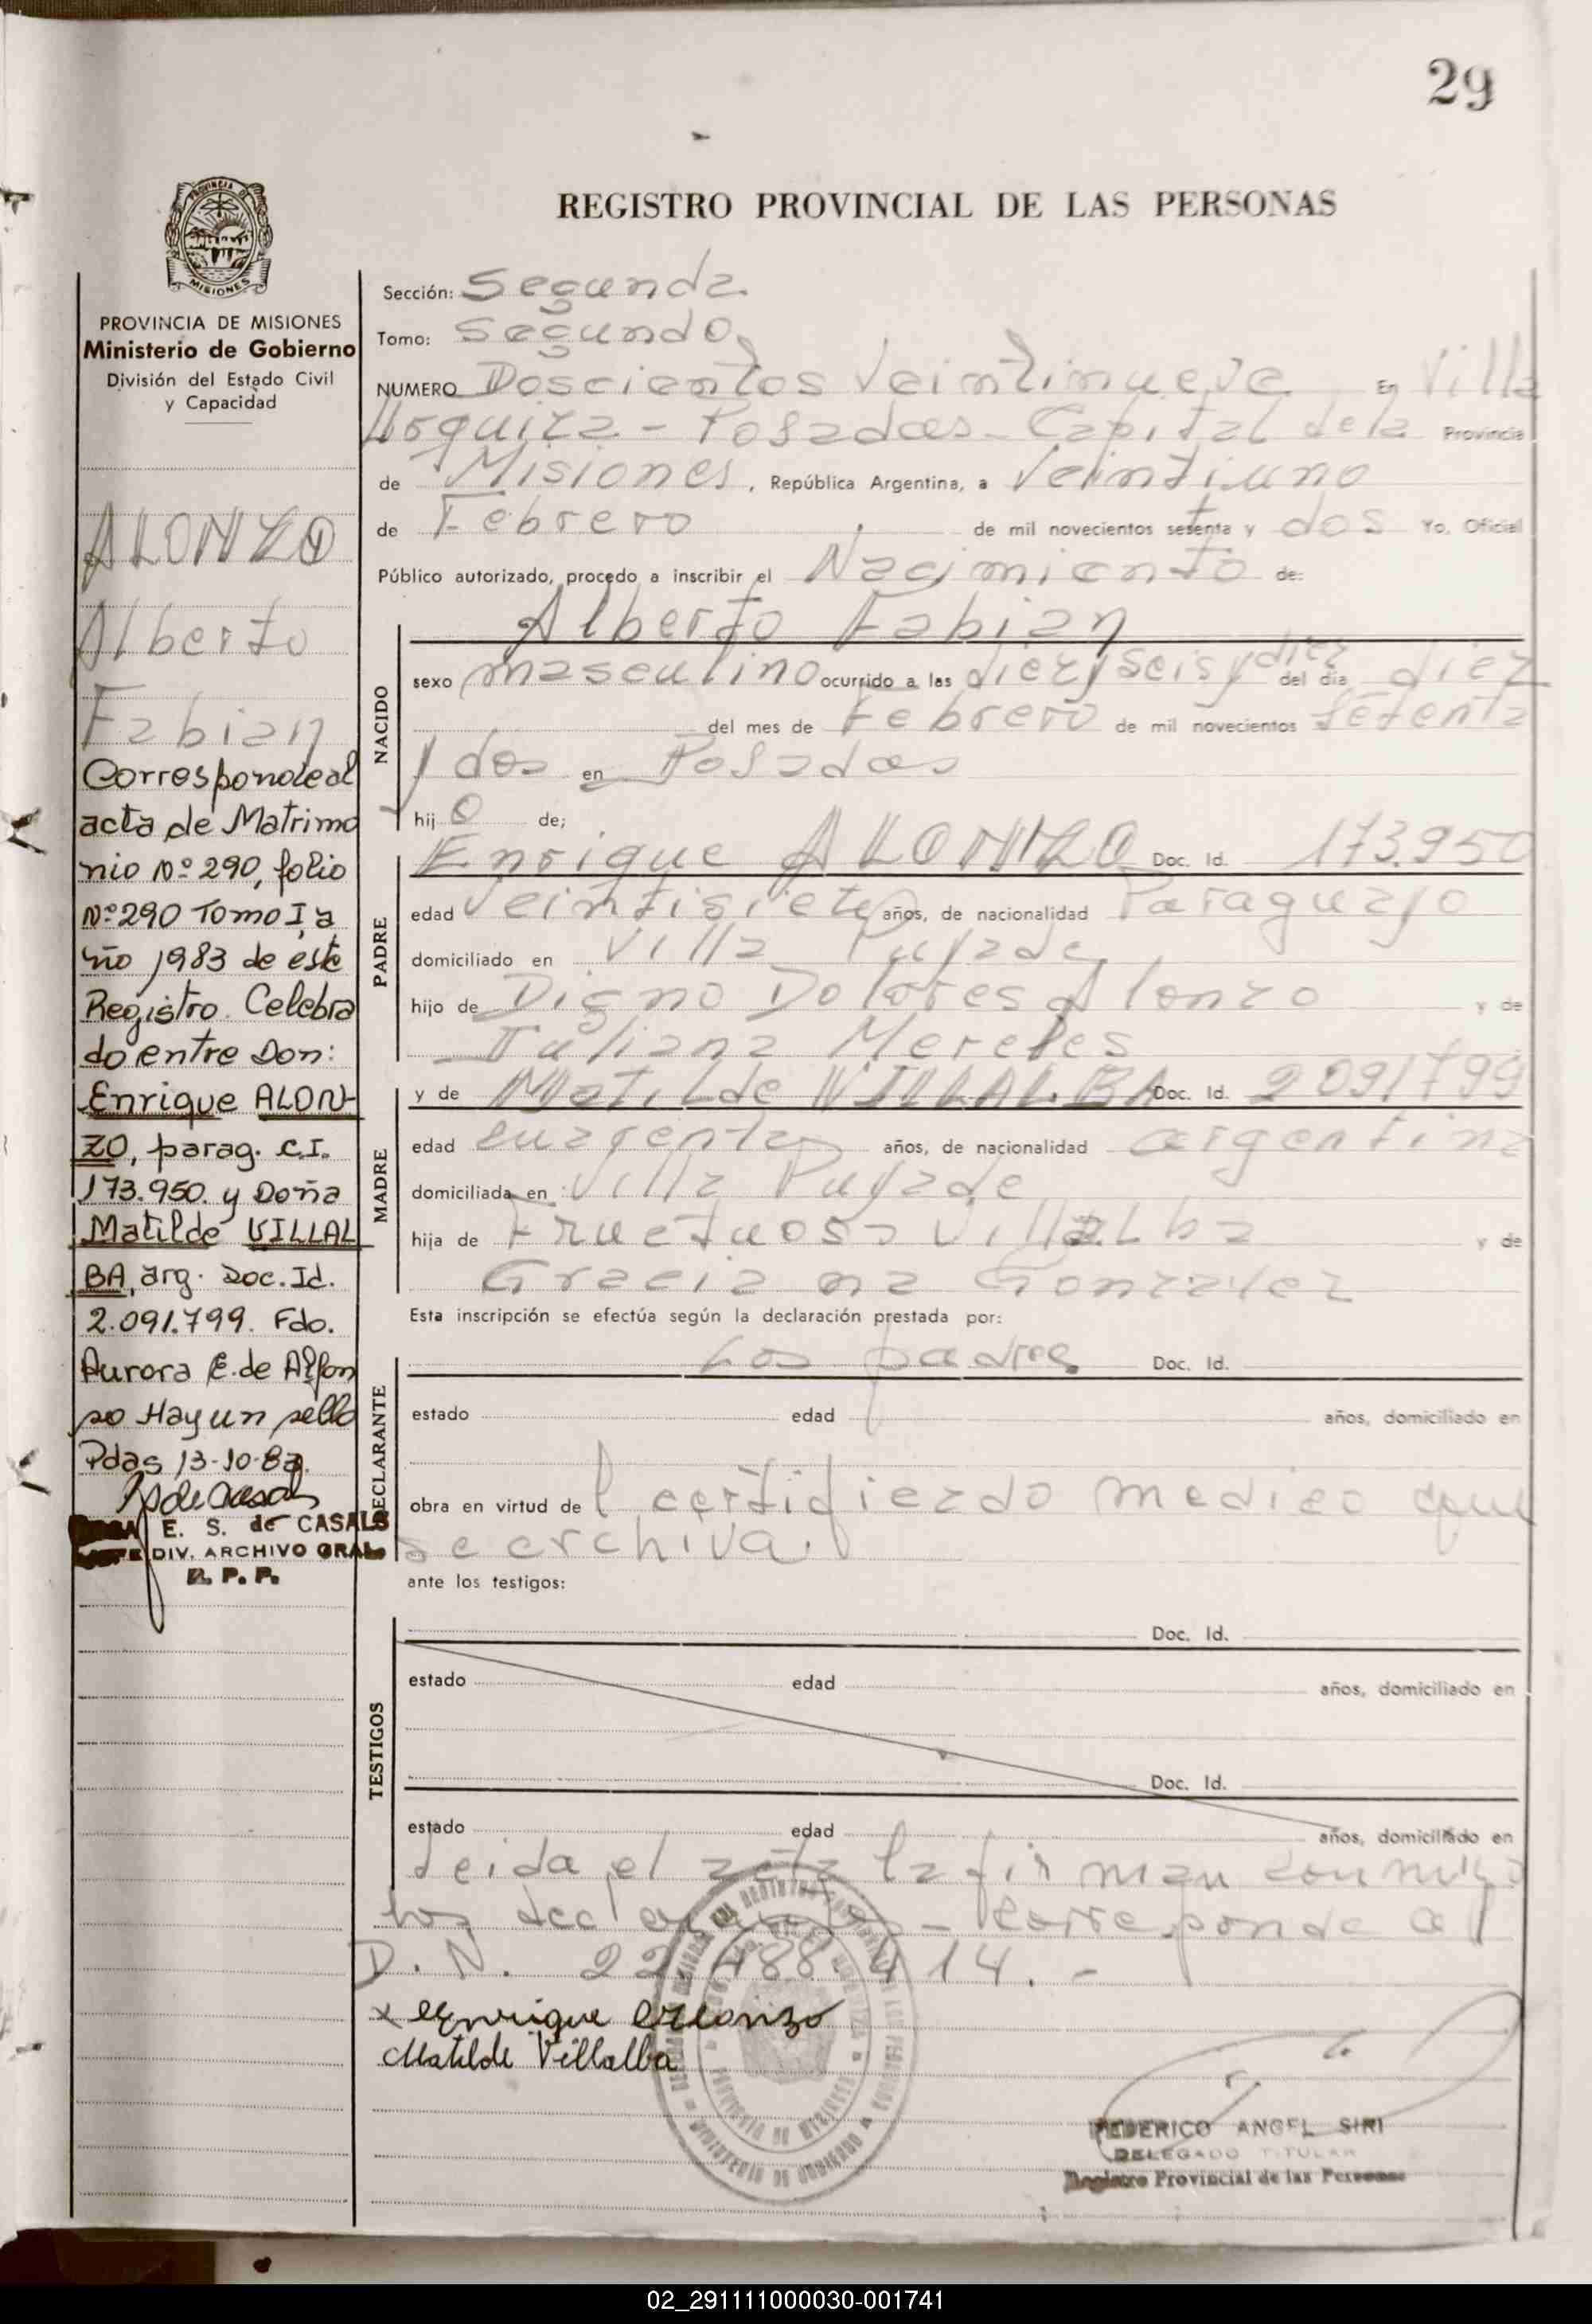 29
REGISTRO PROVINCIAL DE LAS PERSONAS
PROVINCIA DE MISIONES
Ministerio de Gobierno
División del Estado Civil
y Capacidad
ALONZO
Alberto
Fabian
Corresponde al
acta de Matrimo
nio Nº 290, folio
Nº 290 Tomo I, a
ño 1983 de este
Registro. Celebra
do entre Don:
Enrique ALON-
ZO, parag. C.I.
173.950. y Doña
Matilde VILLAL
BA, arg. Doc. Id.
2.091.799. Fdo.
Aurora E. de Alfon
so Hay un sello
Pdas 13-10-83.
E. S. de CASALS
DIV. ARCHIVO GRAL.
R. P. P.
Sección: Segunda
Tomo: Segundo
NUMERO Doscientos Veintinueve En Villa
Urquiza - Posadas - Capital de la Provincia
de Misiones, República Argentina, a Veintiuno
de Febrero de mil novecientos setenta y dos Yo, Oficial
Público autorizado, procedo a inscribir el Nacimiento de:
Alberto Fabian
NACIDO
sexo masculino ocurrido a las diez y seis y diez del día diez
del mes de Febrero de mil novecientos setenta
y dos en Posadas
hij o de;
PADRE
Enrique ALONZO Doc. Id. 173.950
edad Veintisiete años, de nacionalidad Paraguayo
domiciliado en Villa Puyade
hijo de Digno Dolores Alonzo y de
Juliana Mereles
MADRE
y de Matilde VILLALBA Doc. Id. 2091799
edad cuarenta años, de nacionalidad argentina
domiciliada en Villa Puyade
hija de Fructuosa Villalba y de
Graciana Gonzalez
Esta inscripción se efectúa según la declaración prestada por:
DECLARANTE
Los padres Doc. Id.
estado edad años, domiciliado en
obra en virtud de l certificado medico que
se archiva.
ante los testigos:
TESTIGOS
Doc. Id.
estado edad años, domiciliado en
Doc. Id.
estado edad años, domiciliado en
Leida el acta la firman conmigo
los declarantes - Corresponde al
D. N. 22.488.414. -
x Enrique Alonzo
Matilde Villalba
FEDERICO ANGEL SIRI
DELEGADO TITULAR
Registro Provincial de las Personas
02_291111000030-001741